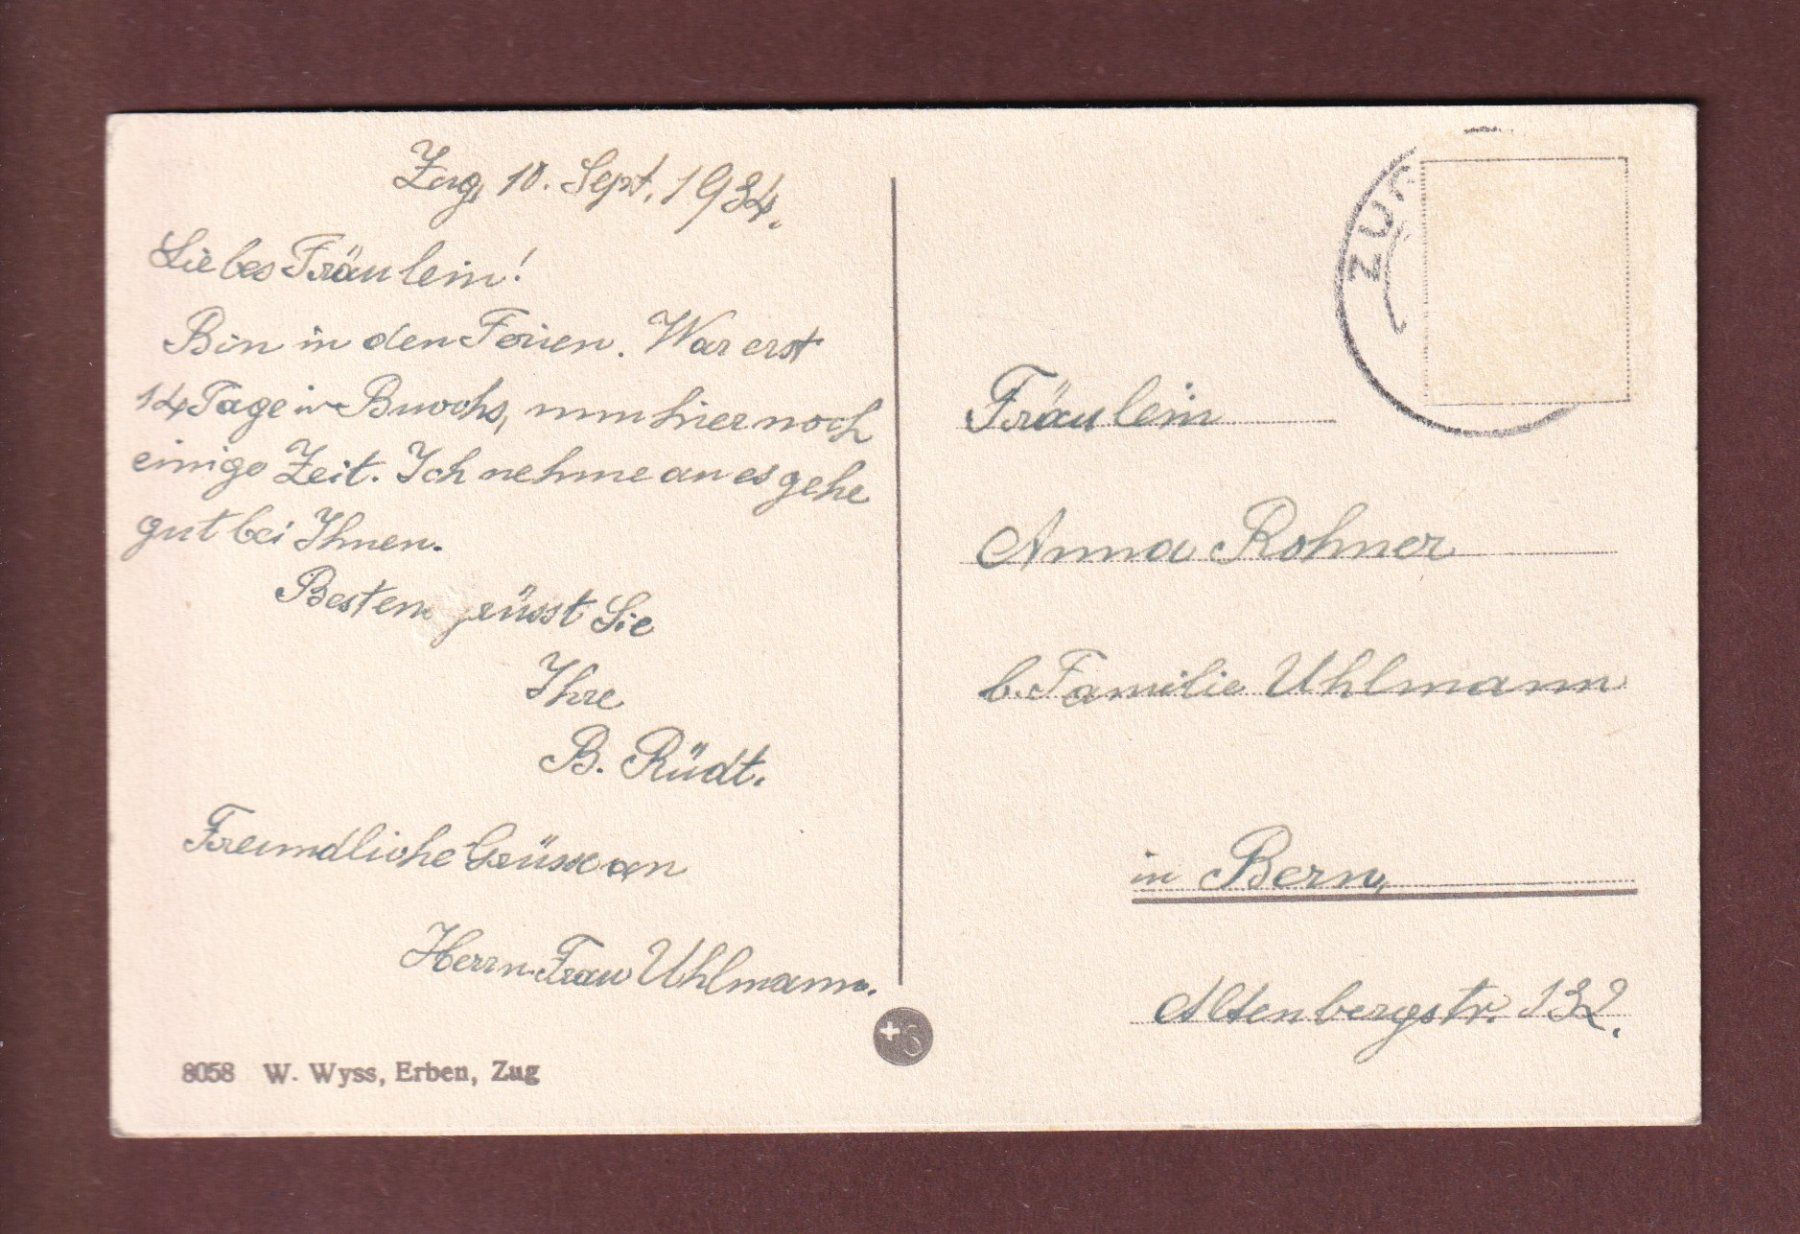 Zug, 10. Sept. 1934.
Liebes Fräulein!
Bin in den Ferien. War erst
14 Tage in Buochs, nun hier noch
einige Zeit. Ich nehme an es gehe
gut bei Ihnen.
Bestens grüsst Sie
Ihre
B. Rüdt.
Freundliche Grüsse an
Herrn. Frau Uhlmann.
8058 W. Wyss, Erben, Zug
ZUG
Fräulein
Anna Rohner
b. Familie Uhlmann
in Bern,
Altenbergstr. 132.